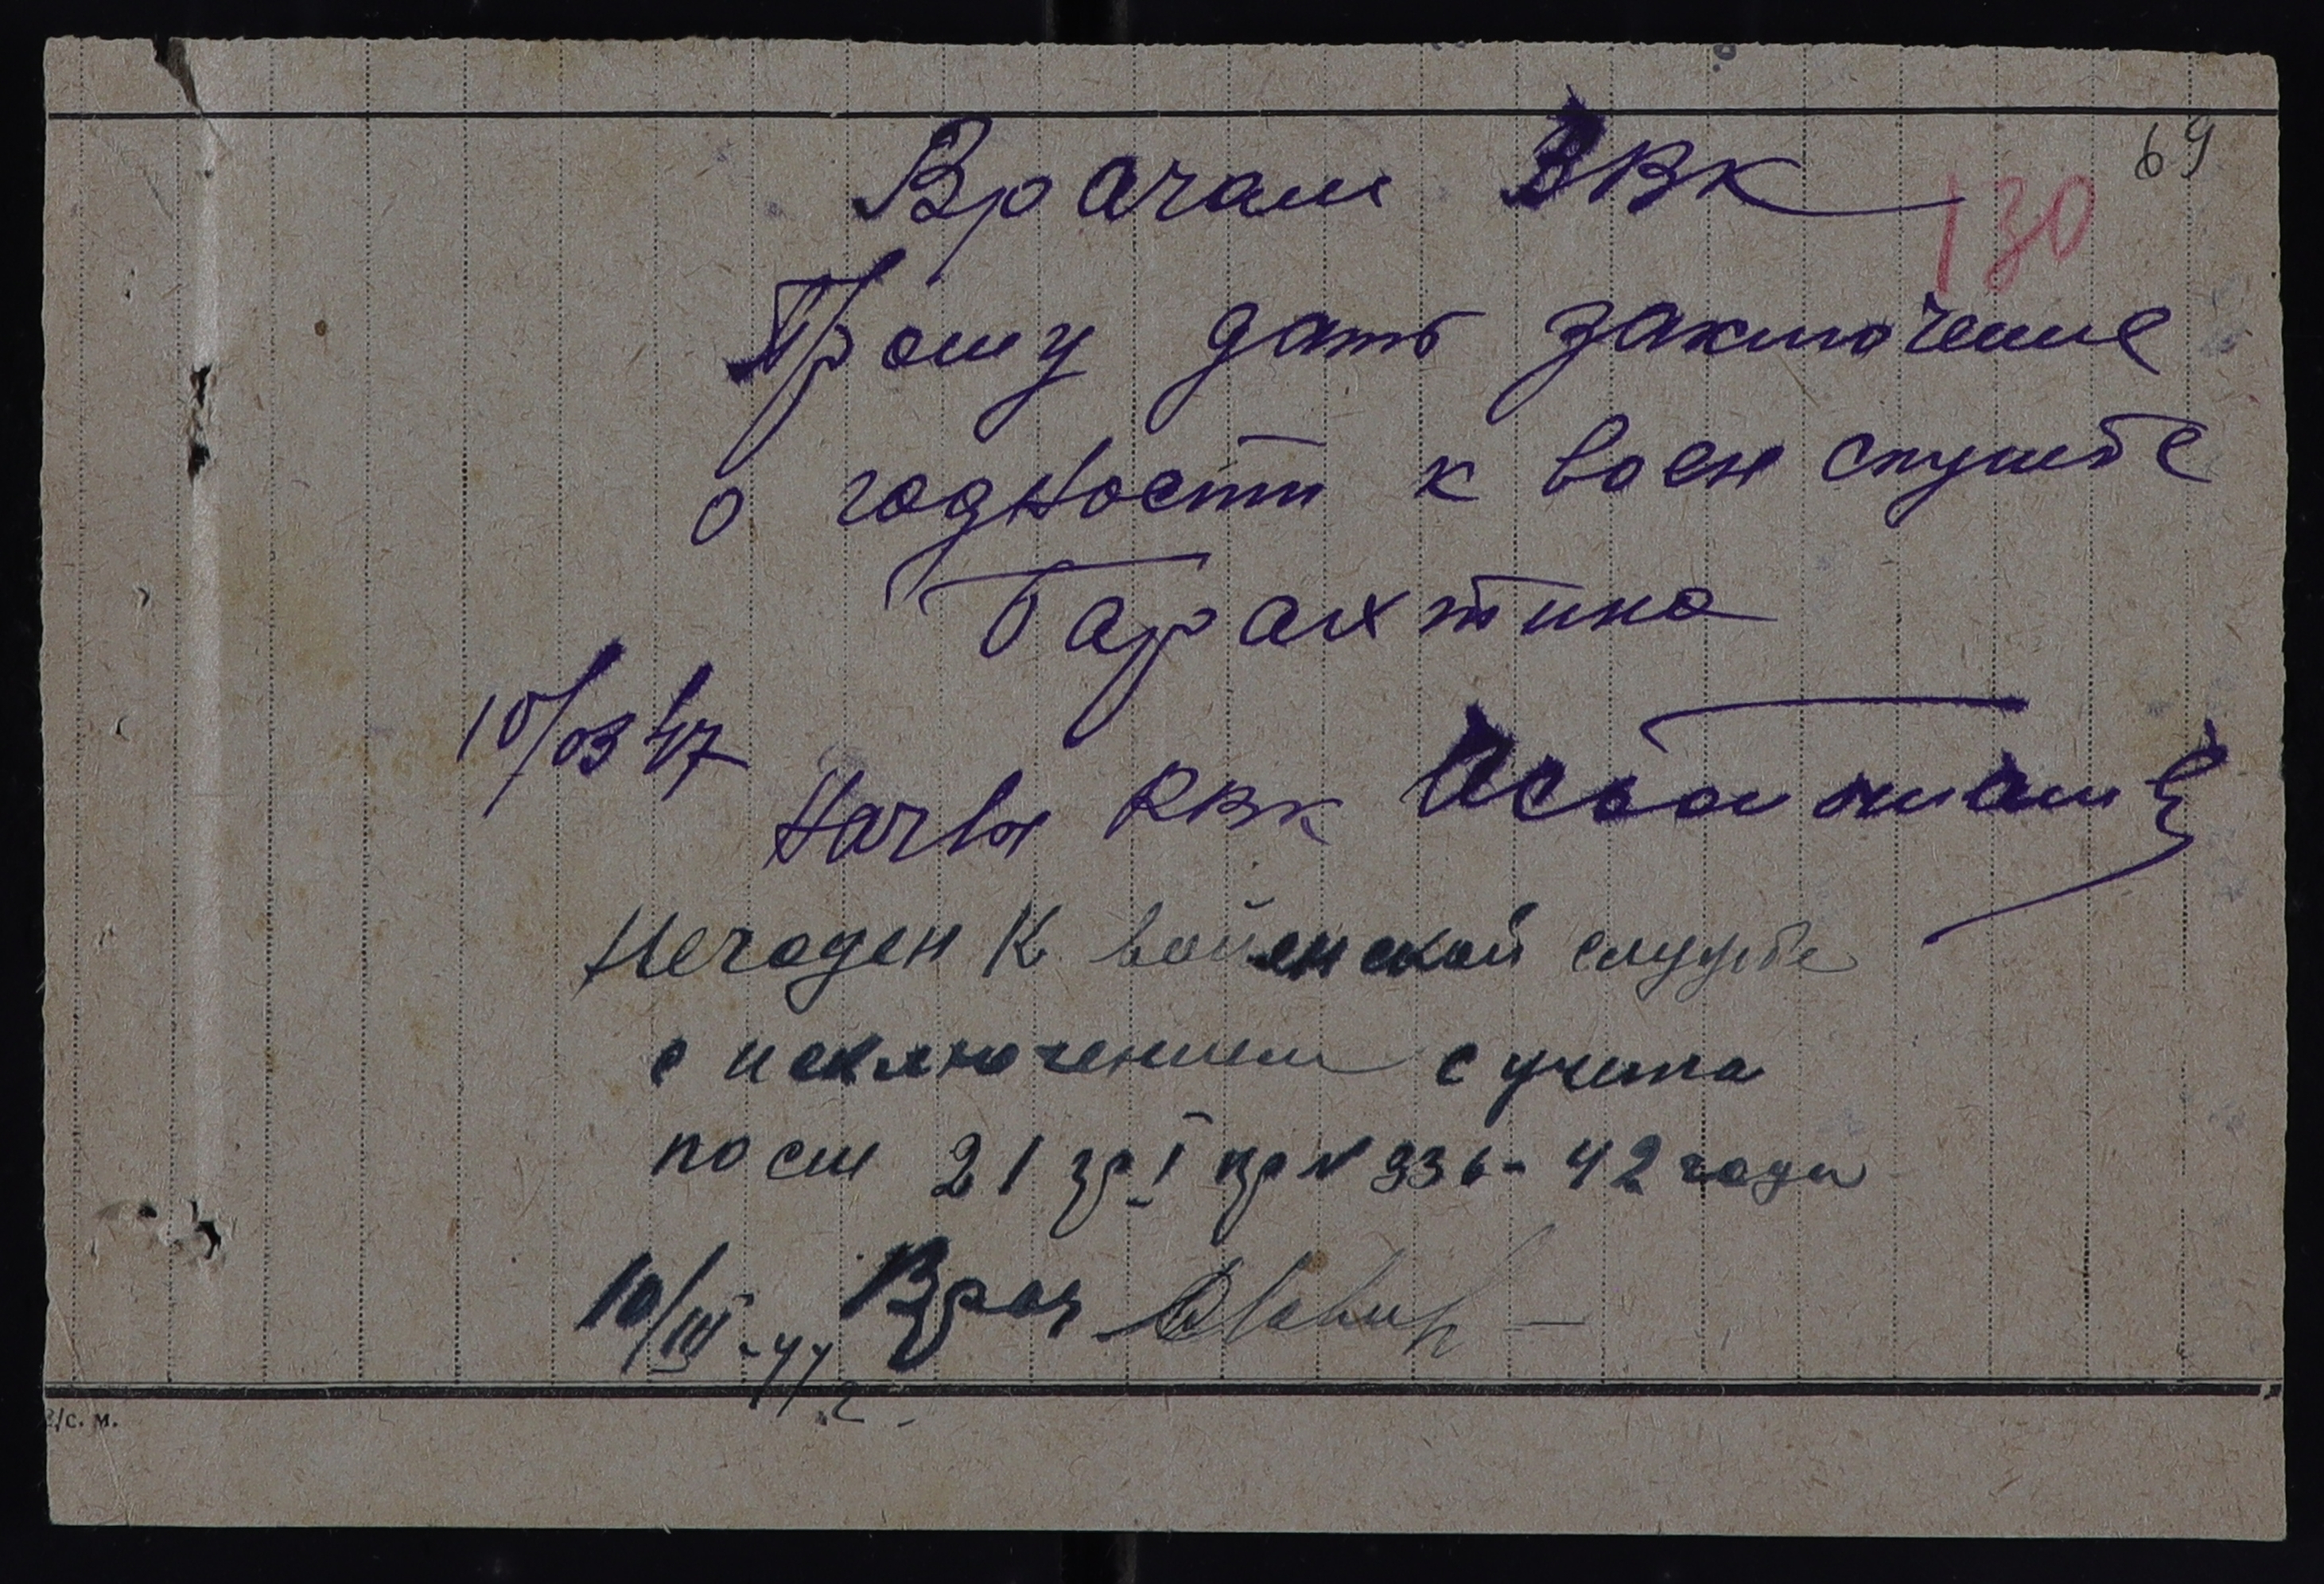 69
130
Врачам ВВК
Прошу дать заключение
о годности к воен службе
Тарахтина
10/03 47
РВК
Негоден к вайенской службе
с исключением с учета
по сш 21 гр I пр N 336-42 года
10/III-47 г. Врач
2/с. м.